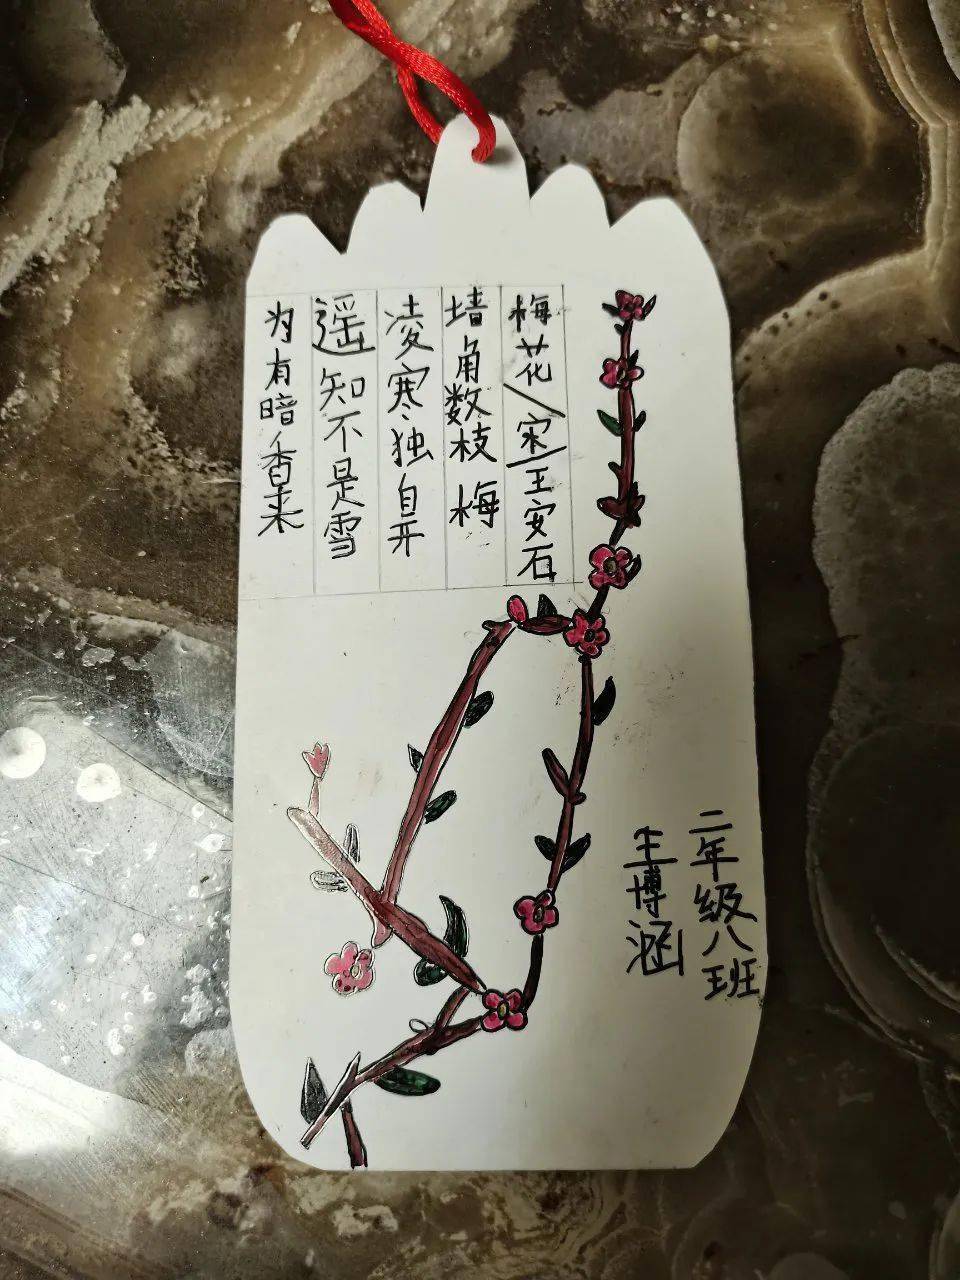 梅花／宋—王安石
墙角数枝梅
凌寒独自开
遥知不是雪
为有暗香来
二年级八班
王博涵